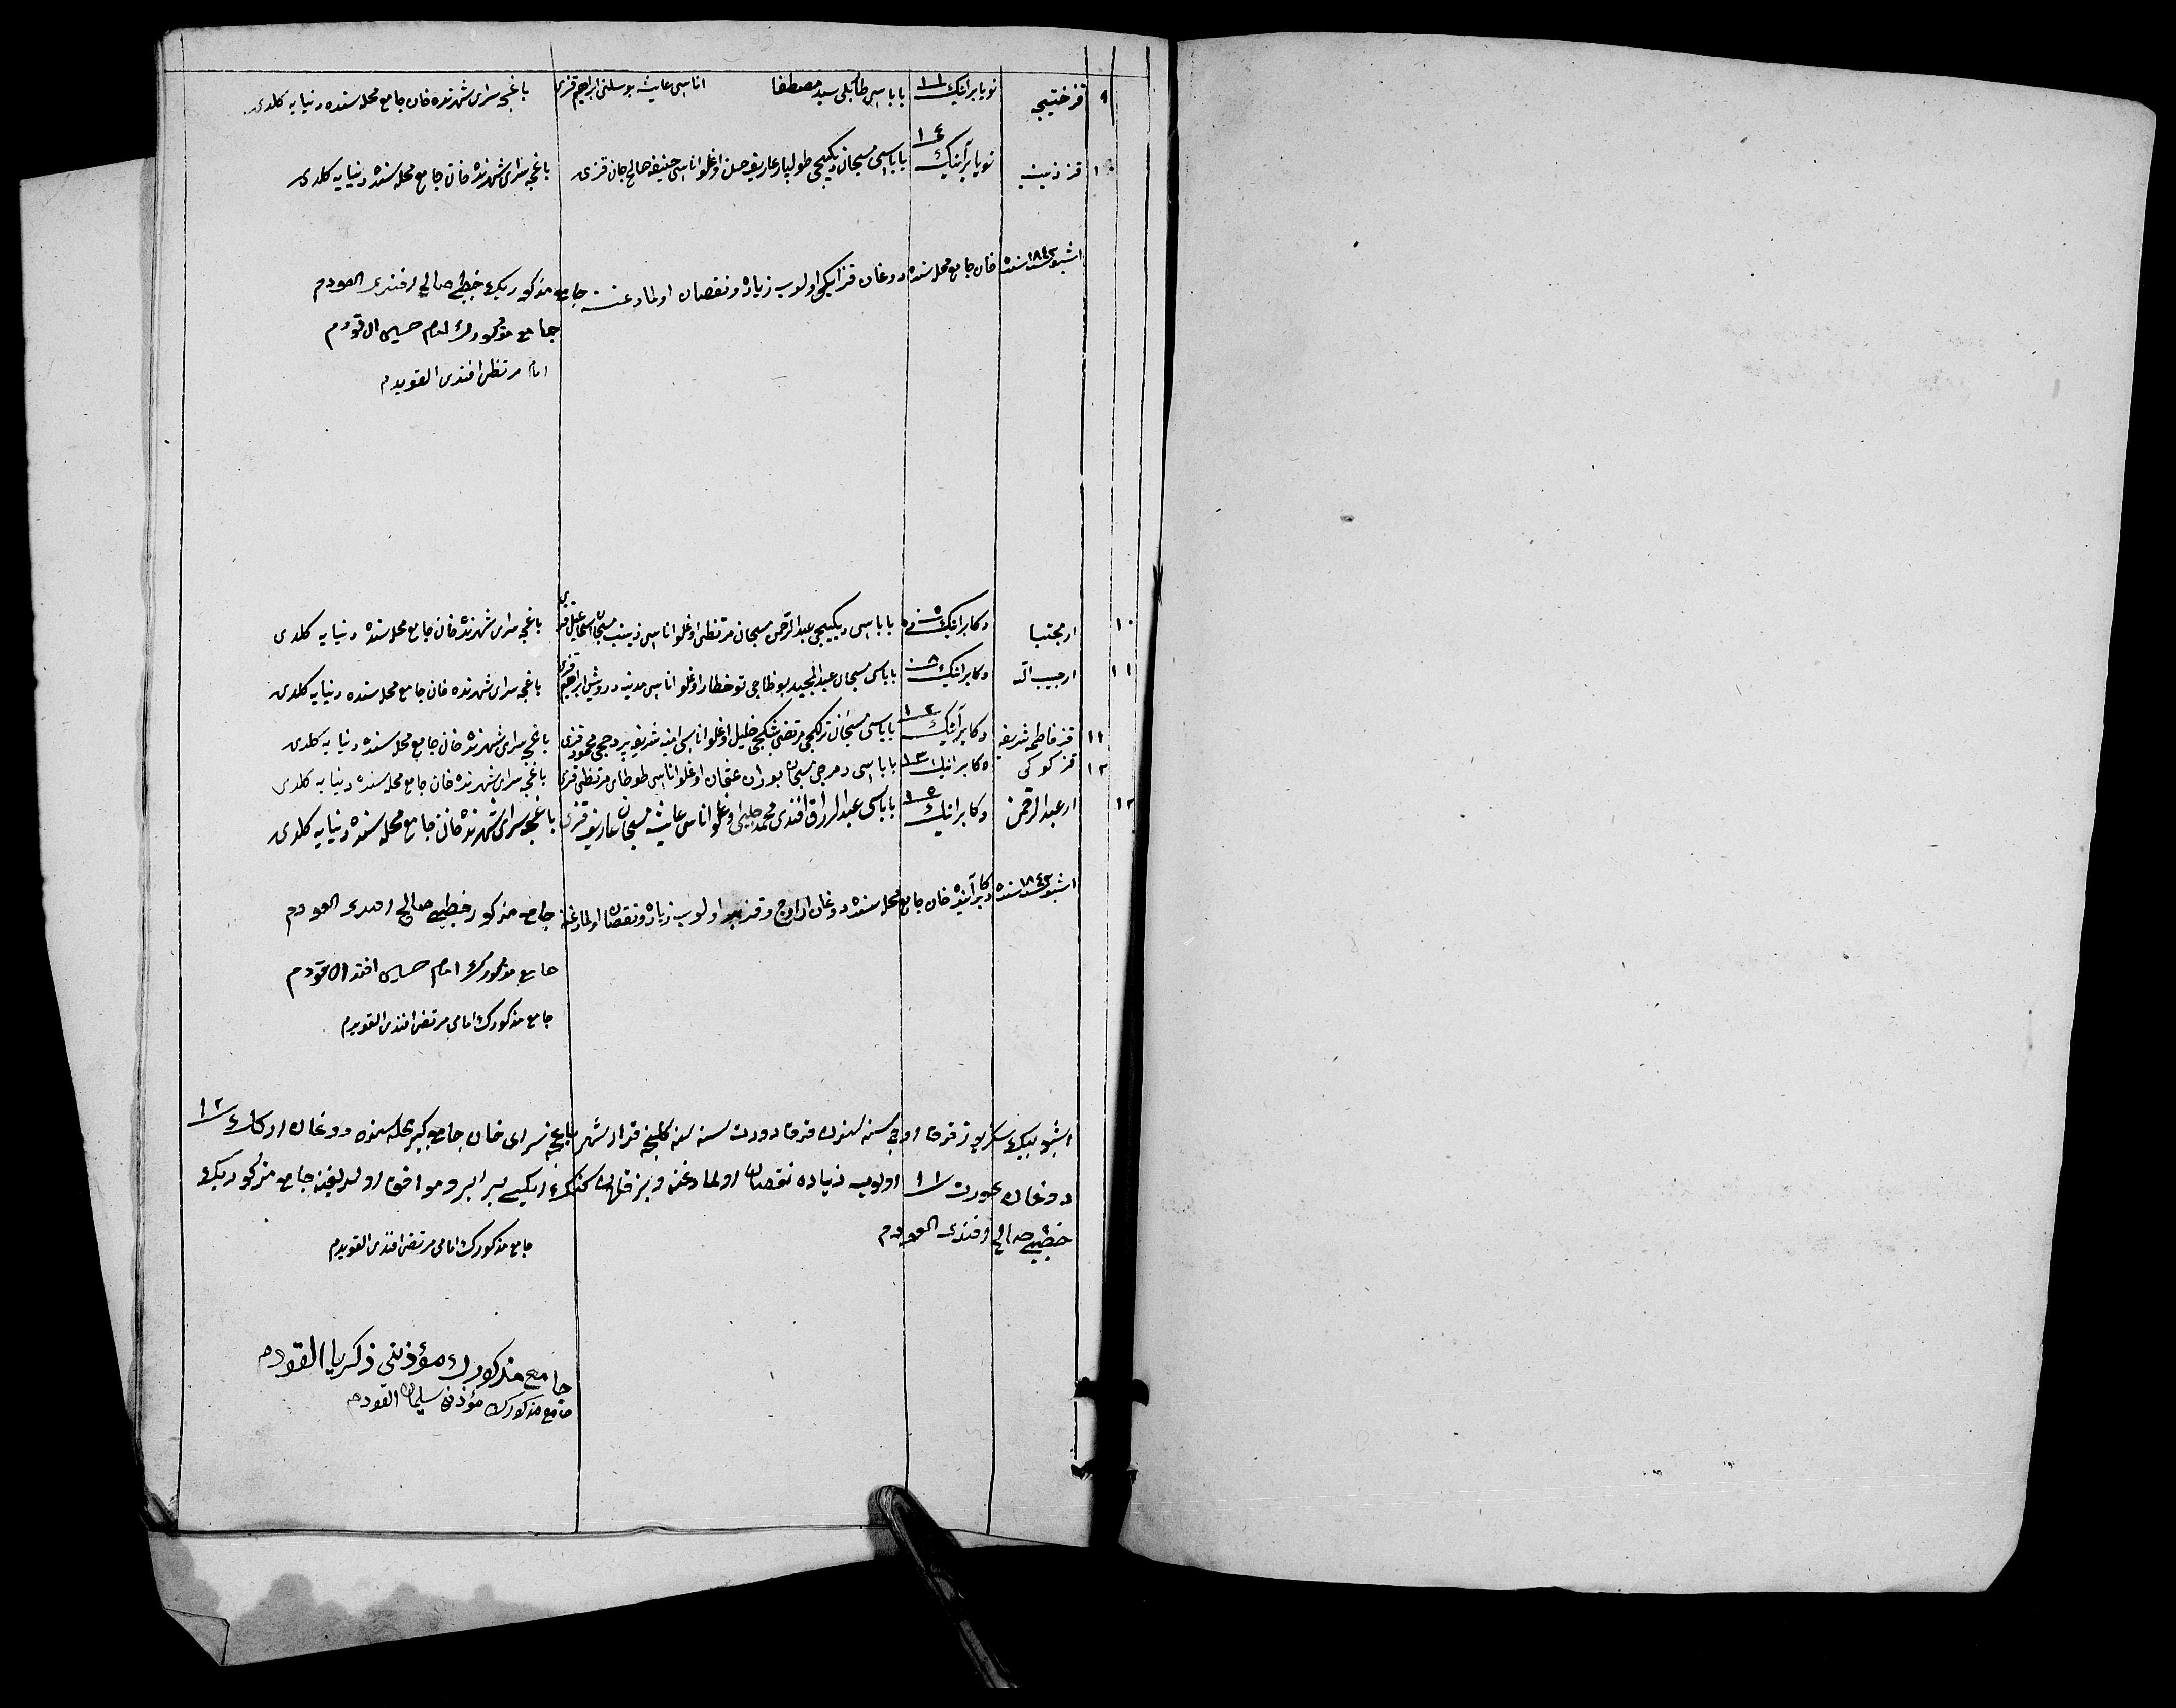 ٩ قز ختیجه نویابرانیڭ ١١ باباسی طابلی سید مصطفا اناسی عایشه بوسلنی ابراهیم قزی باغچه سرای شهرنده خان جامع محله سنده دنیایه کلدی
١٠ قز زینب نویابرآنیڭ ١٤ باباسی مسیجان دیکیجی طولپار عاریف حسن اوغلو اناسی حنیفه صالح جان قزی باغچه سرای شهرنده خان جامع محله سنده دنیایه کلدی
اشبو ١٨٤٣ سنده خان جامع محله سنده دوغان قز ایکی اولوب زیاده و نقصان اولمادغنه جامع مذکورینك خطیبی صالح افندی القویدم
جامع مذکورنك امام حسین ال قودم
امام مرتظی افندی القویدم
١٠ ار مجتبا دکابرانیڭ ٥ نده باباسی دیکیجی عبدالرحمن مسیجان مرتظی اوغلو اناسی زینب مسیجان اسماعیل قزی باغچه سرای شهرنده خان جامع محله سنده دنیایه کلدی
١١ ار حبیب الله دکابرانیڭ ٨ باباسی مسیجان عبدالمجید بوظاجی توخطار اوغلو اناسی مدنیه درویش ابراهیم قزی باغچه سرای شهرنده خان جامع محله سنده دنیایه کلدی
١١ قز فاطمه شریفه دکابرآنیڭ ١٢ باباسی مسیجان ترلکجی مرتضی شکجی خلیل اوغلو اناسی امینه شریفه پیردجی محمود قزی باغچه سرای شهرنده خان جامع محله سنده دنیایه کلدی
١٢ قز کوکی دکابرانیڭ ١٣ باباسی دمرجی مسیجان بوران عثمان اوغلو اناسی طوطای مرتظی قزی باغچه سرای شهرنده خان جامع محله سنده دنیایه کلدی
١٢ ار عبدالرحمن دکابرانیڭ ١٥ باباسی عبدالرزاق افندی محمد چلبی اوغلو اناسی عایشه مسیجان عاریف قزی باغچه سرای شهرنده خان جامع محله سنده دنیایه کلدی
اشبو ١٨٤٣ سنده دکابرآینده خان جامع محله سنده دوغان ار اوچ و قز اولوب زیاده و نقصان اولمادغنه جامع مذکور خطیبی صالح افندی القویدم
جامع مذکورنك امام حسین افندی ال قودم
جامع مذکورنك امامی مرتضی افندی القویدم
اشبو بیك سکز یوز قرق اوچنجی سنه سندن قرق دورت سنه سنه کلینجه قدار شهر باغچه سرای خان جامع کبیر محله سنده دوغان ارکك ١٢
دوغان عورت ١١ اولوب زیاده نقصان اولمادغنه و بز قولمزده کنك ایکیسی برابر و موافق اولدیغنه جامع مذکورینك
خطیبی صالح افندی القویدم جامع مذکورنك امامی مرتضی افندی القویدم
جامع مذکورنك مؤذنی ذکریا القودم
جامع مذکورنك مؤذنی سلیمان القودم